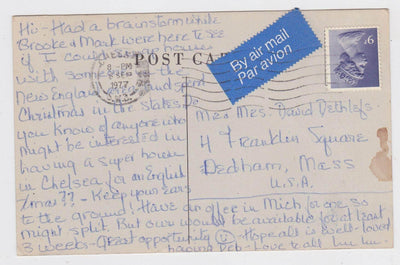 Hi - Had a brainstorm while
Brooke & Mark were here to see
if I could swap houses
with someone in the
New England area and spend
Christmas in the States. Do
you know of anyone who
might be interested in
having a super house
in Chelsea for an English
Xmas?? - Keep your ears
to the ground! Have an offer in Mich for one so
might split. But our would be available for at least
3 weeks - Great opportunity Hope all is well - loved
having Deb - Love to all
POST CARD
By air mail
Par avion
1977
9P
Mrs. David Dethlefs
4 Franklin Square
Dedham, Mass
U.S.A.